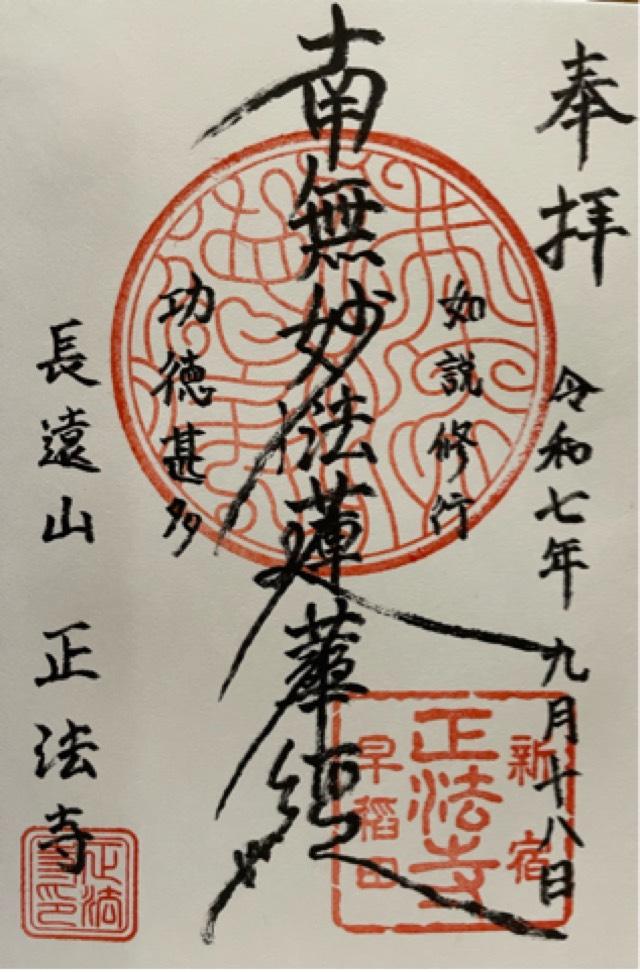 奉拝
令和七年九月十八日
如説修行
南無妙法蓮華経
功徳甚多
長遠山 正法寺
新宿
正法寺
早稲田